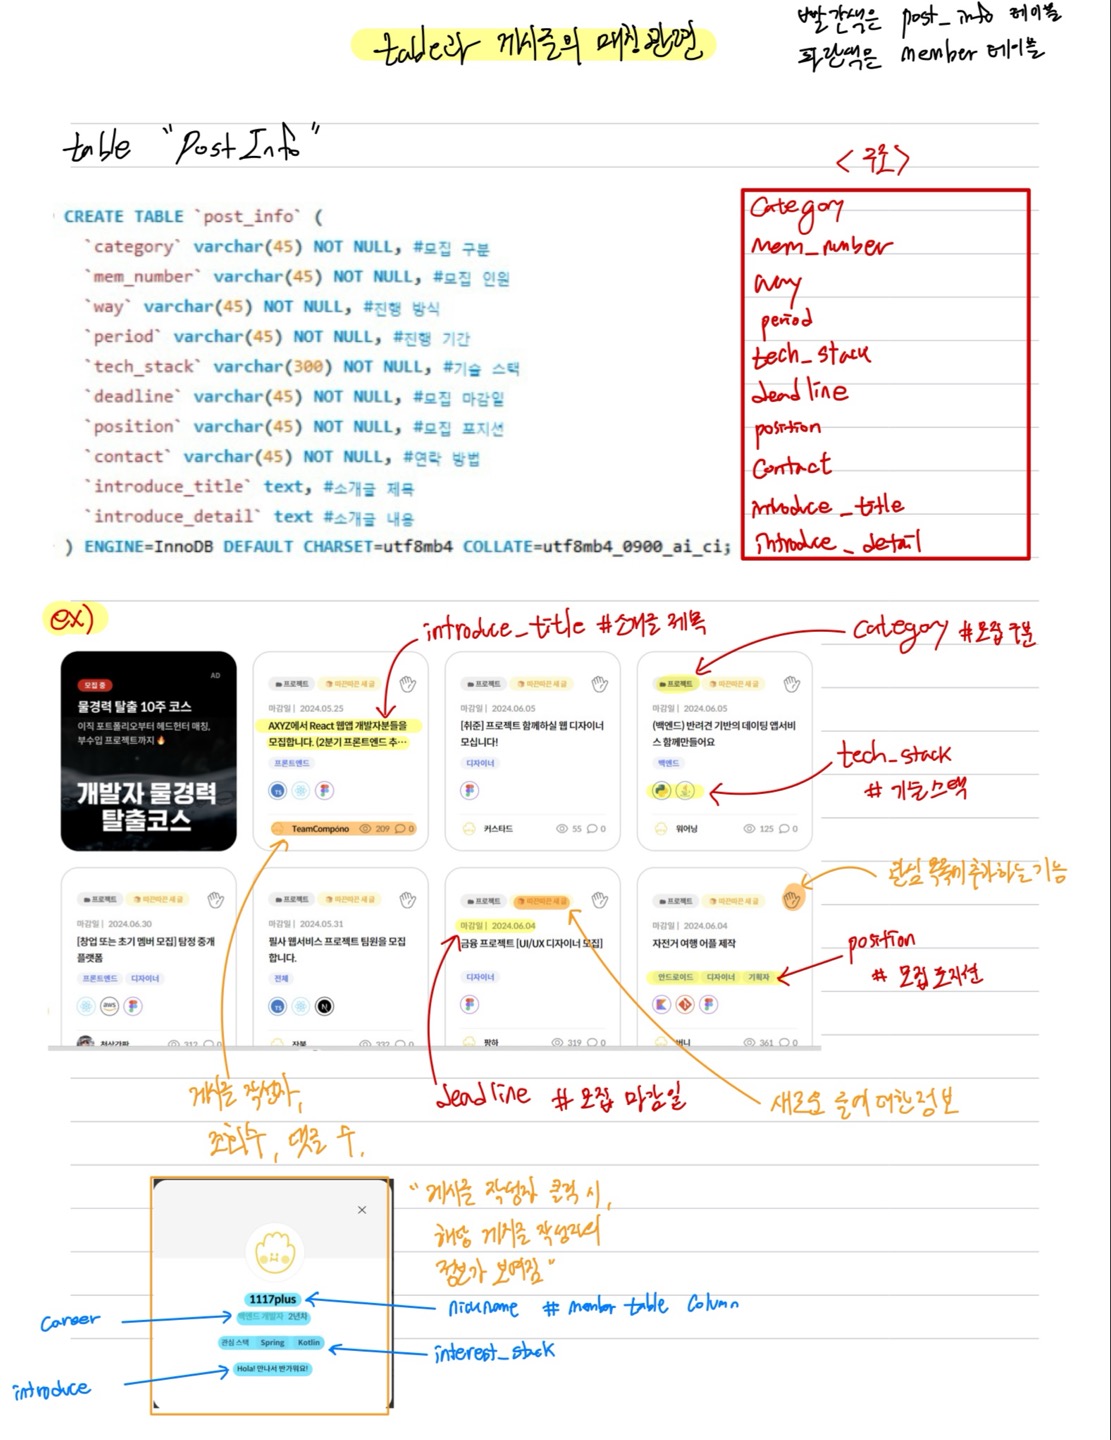 빨간색은 post_info 테이블
파란색은 member 테이블
table과 게시글의 매칭관련
table "Post Info"
<구조>
CREATE TABLE `post_info` (
`category` varchar(45) NOT NULL, #모집 구분
`mem_number` varchar(45) NOT NULL, #모집 인원
`way` varchar(45) NOT NULL, #진행 방식
`period` varchar(45) NOT NULL, #진행 기간
`tech_stack` varchar(300) NOT NULL, #기술 스택
`deadline` varchar(45) NOT NULL, #모집 마감일
`position` varchar(45) NOT NULL, #모집 포지션
`contact` varchar(45) NOT NULL, #연락 방법
`introduce_title` text, #소개글 제목
`introduce_detail` text #소개글 내용
) ENGINE=InnoDB DEFAULT CHARSET=utf8mb4 COLLATE=utf8mb4_0900_ai_ci;
Category
Mem_number
way
period
tech_stack
deadline
position
Contact
introduce_title
introduce_detail
ex)
introduce_title #소개글 제목
category #모집 구분
AD
모집 중
물경력 탈출 10주 코스
이직 포트폴리오부터 헤드헌터 매칭,
부수입 프로젝트까지🔥
개발자 물경력
탈출코스
프로젝트 따끈따끈 새 글
마감일 | 2024.05.25
AXYZ에서 React 웹앱 개발자분들을
모집합니다. (2분기 프론트엔드 추…
프론트엔드
TS
TeamCompóno 209 0
프로젝트 따끈따끈 새 글
마감일 | 2024.06.05
[취준] 프로젝트 함께하실 웹 디자이너
모십니다!
디자이너
커스타드 55 0
프로젝트 따끈따끈 새 글
마감일 | 2024.06.05
(백엔드) 반려견 기반의 데이팅 앱서비
스 함께만들어요
백엔드
워어닝 125 0
tech_stack
# 기술스택
프로젝트 따끈따끈 새 글
마감일 | 2024.06.30
[창업 또는 초기 멤버 모집] 탐정 중개
플랫폼
프론트엔드 디자이너
aws
312 0
프로젝트 따끈따끈 새 글
마감일 | 2024.05.31
필사 웹서비스 프로젝트 팀원을 모집
합니다.
전체
TS N
332 0
프로젝트 따끈따끈 새 글
마감일 | 2024.06.04
금융 프로젝트 [UI/UX 디자이너 모집]
디자이너
팜하 319 0
프로젝트 따끈따끈 새 글
마감일 | 2024.06.04
자전거 여행 어플 제작
안드로이드 디자이너 기획자
버니 361 0
관심 목록에 추가하는 기능
position
# 모집 포지션
게시글 작성자,
조회수, 댓글 수.
deadline # 모집 마감일
새로운 글에 대한 정보
"게시글 작성자 클릭 시,
해당 게시글 작성자의
정보가 보여짐"
1117plus
백엔드 개발자 2년차
관심 스택 Spring Kotlin
Hola! 만나서 반가워요!
nickname # member table column
career
interest_stack
introduce